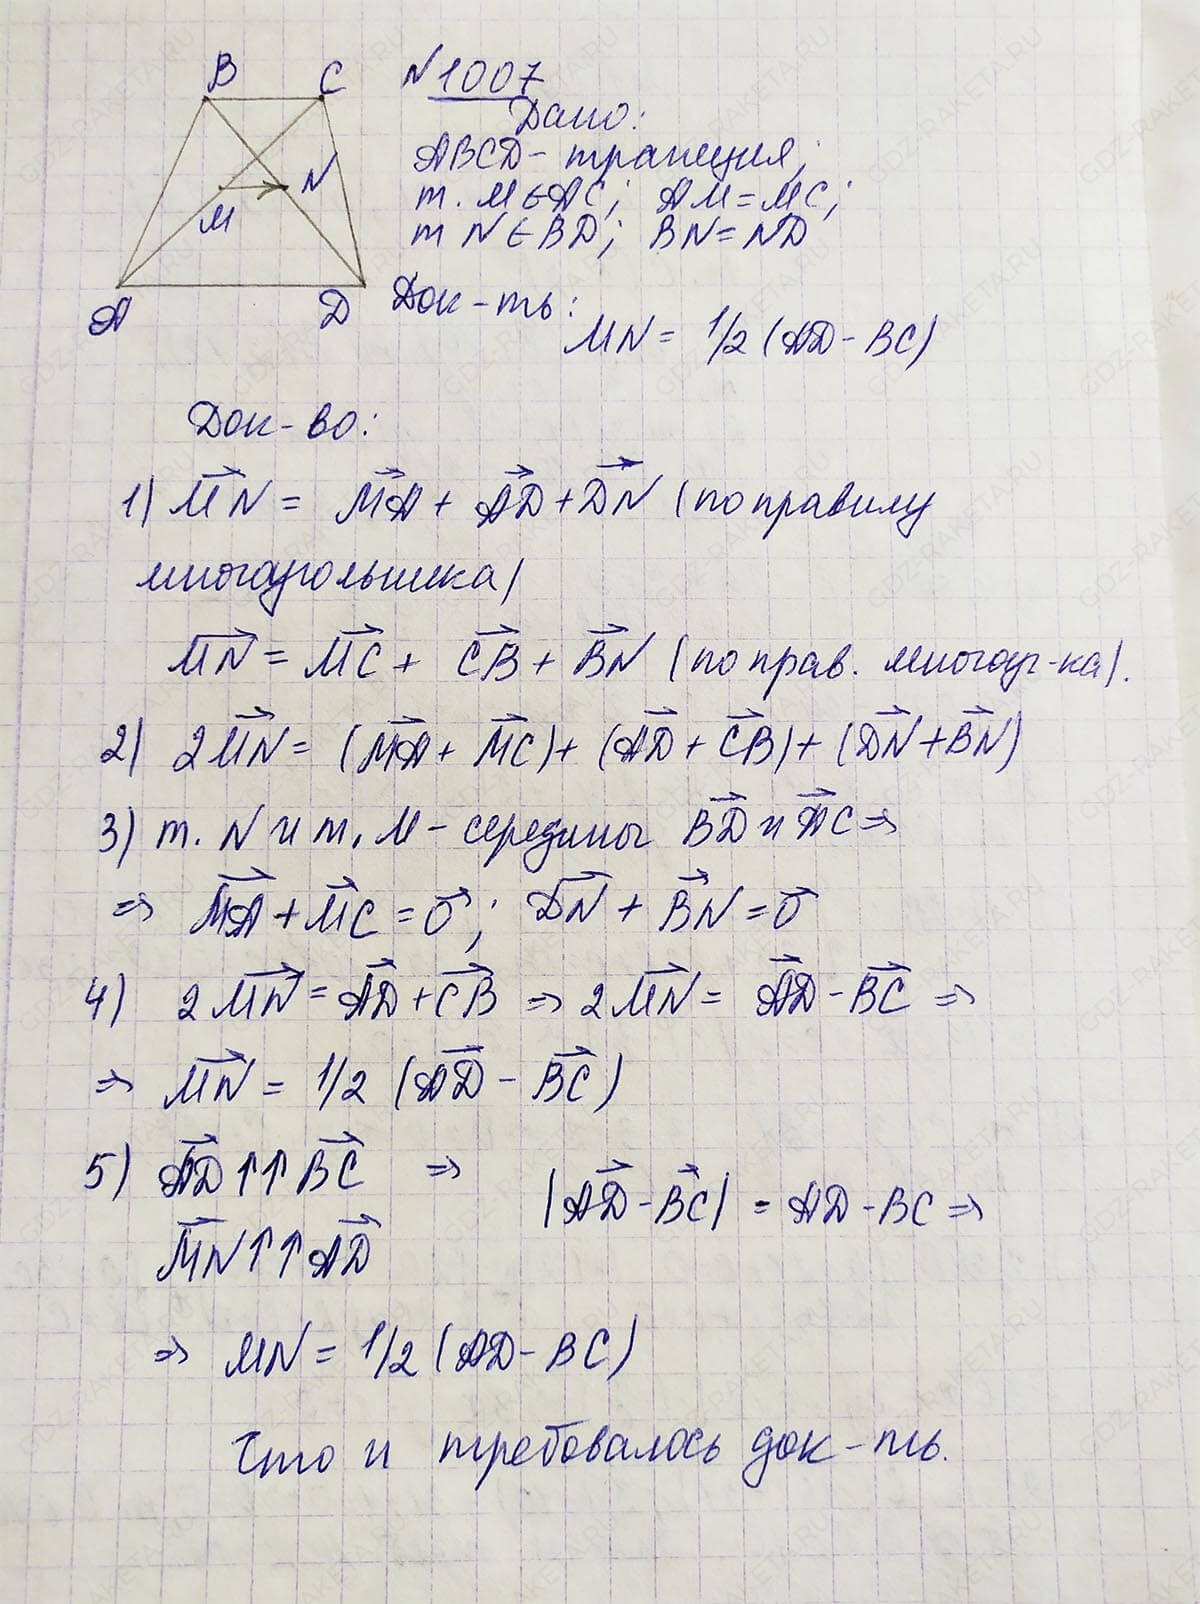 B
C
N
M
A
D
N 1007
Дано:
ABCD - трапеция;
т. M ∈ AC; AM = MC;
т N ∈ BD; BN = ND
Док-ть:
MN = 1/2 (AD - BC)
Док-во:
1) MN→ = MA→ + AD→ + DN→ (по правилу
многоугольника)
MN→ = MC→ + CB→ + BN→ (по прав. многоуг-ка).
2) 2MN→ = (MA→ + MC→) + (AD→ + CB→) + (DN→ + BN→)
3) т. N и т. M - середины BD→ и AC→ =>
=> MA→ + MC→ = 0→; DN→ + BN→ = 0→
4) 2MN→ = AD→ + CB→ => 2MN→ = AD→ - BC→ =>
=> MN→ = 1/2 (AD→ - BC→)
5) AD→ ↑↑ BC→ => |AD→ - BC→| = AD - BC =>
MN→ ↑↑ AD→
=> MN = 1/2 (AD - BC)
Что и требовалось док-ть.
GDZ-RAKETA.RU